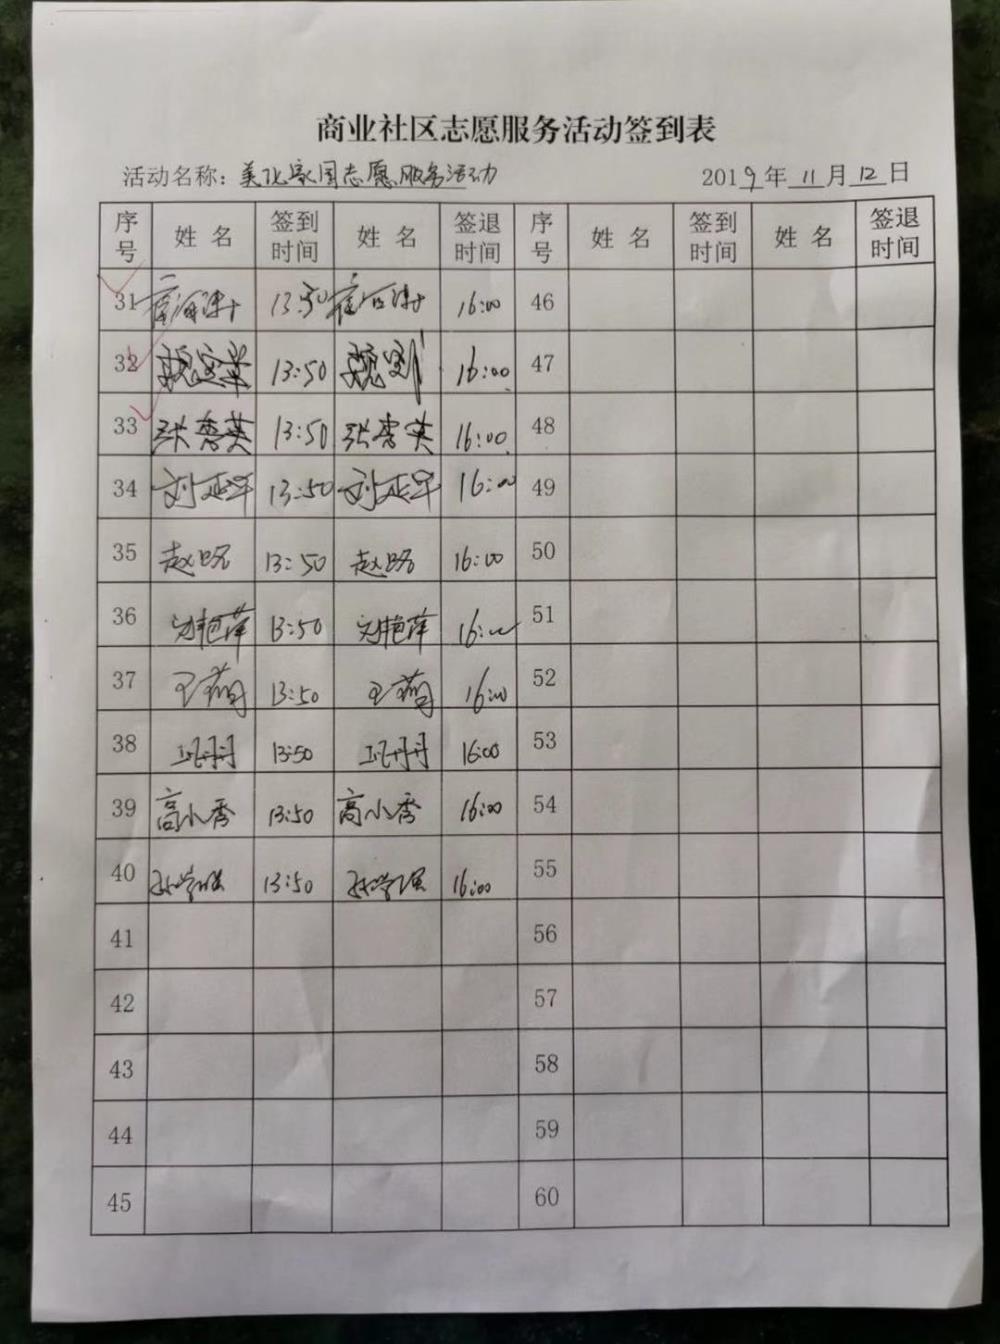 商业社区志愿服务活动签到表
活动名称：美化家园志愿服务活动 2019年11月12日
序号 姓名 签到时间 姓名 签退时间 序号 姓名 签到时间 姓名 签退时间
31 13:50 16:00 46
32 13:50 16:00 47
33 张秀英 13:50 张秀英 16:00 48
34 刘延军 13:50 刘延军 16:00 49
35 赵明 13:50 赵明 16:00 50
36 刘艳萍 13:50 刘艳萍 16:00 51
37 王萌 13:50 王萌 16:00 52
38 丹丹 13:50 丹丹 16:00 53
39 高小秀 13:50 高小秀 16:00 54
40 13:50 16:00 55
41 56
42 57
43 58
44 59
45 60